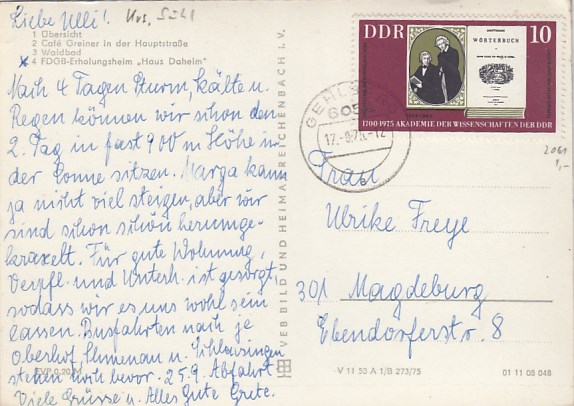 Liebe Ulli!
Krs. Suhl
1 Übersicht
2 Café Greiner in der Hauptstraße
3 Waldbad
x 4 FDGB-Erholungsheim „Haus Daheim"
Nach 4 Tagen Sturm, Kälte u.
Regen können wir schon den
2. Tag in fast 900 m Höhe in
der Sonne sitzen. Marga kann
ja nicht viel steigen, aber wir
sind schon schön herumge-
kraxelt. Für gute Wohnung,
Verpfl. und Unterh. ist gesorgt,
sodass wir es uns wohl sein
lassen. Busfahrten nach je
Oberhof, Ilmenau u. Schleusingen
stehen noch bevor. 25.9. Abfahrt
Viele Grüsse u. Alles Gute Grete.
EVP 0,20 M
VEB BILD UND HEIMAT REICHENBACH I. V.
DDR
10
WÖRTERBUCH
1700-1975 AKADEMIE DER WISSENSCHAFTEN DER DDR
GEHLB
605
17.-9.75.-12
2061
1,-
Frau
Ulrike Freye
301 Magdeburg
Ebendorferstr. 8
V 11 53 A 1/B 273/75
01 11 05 048